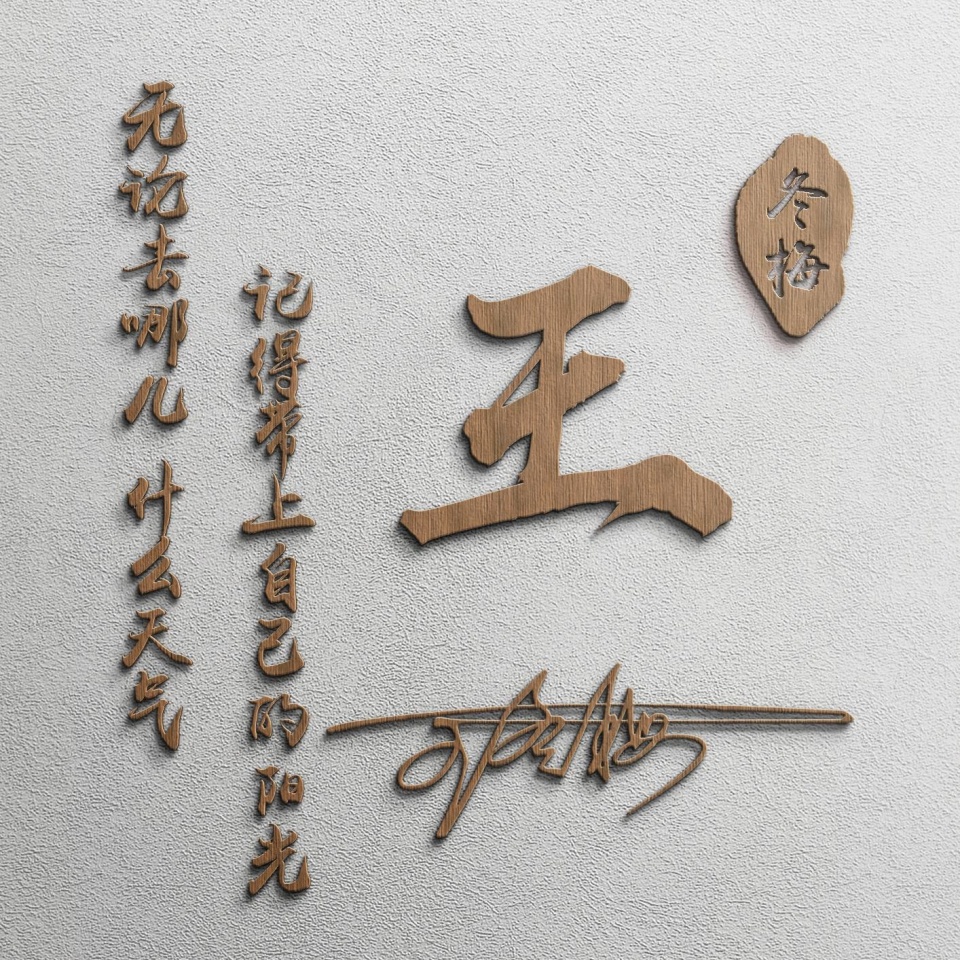 无论去哪儿 什么天气
记得带上自己的阳光
王
冬梅
王冬梅